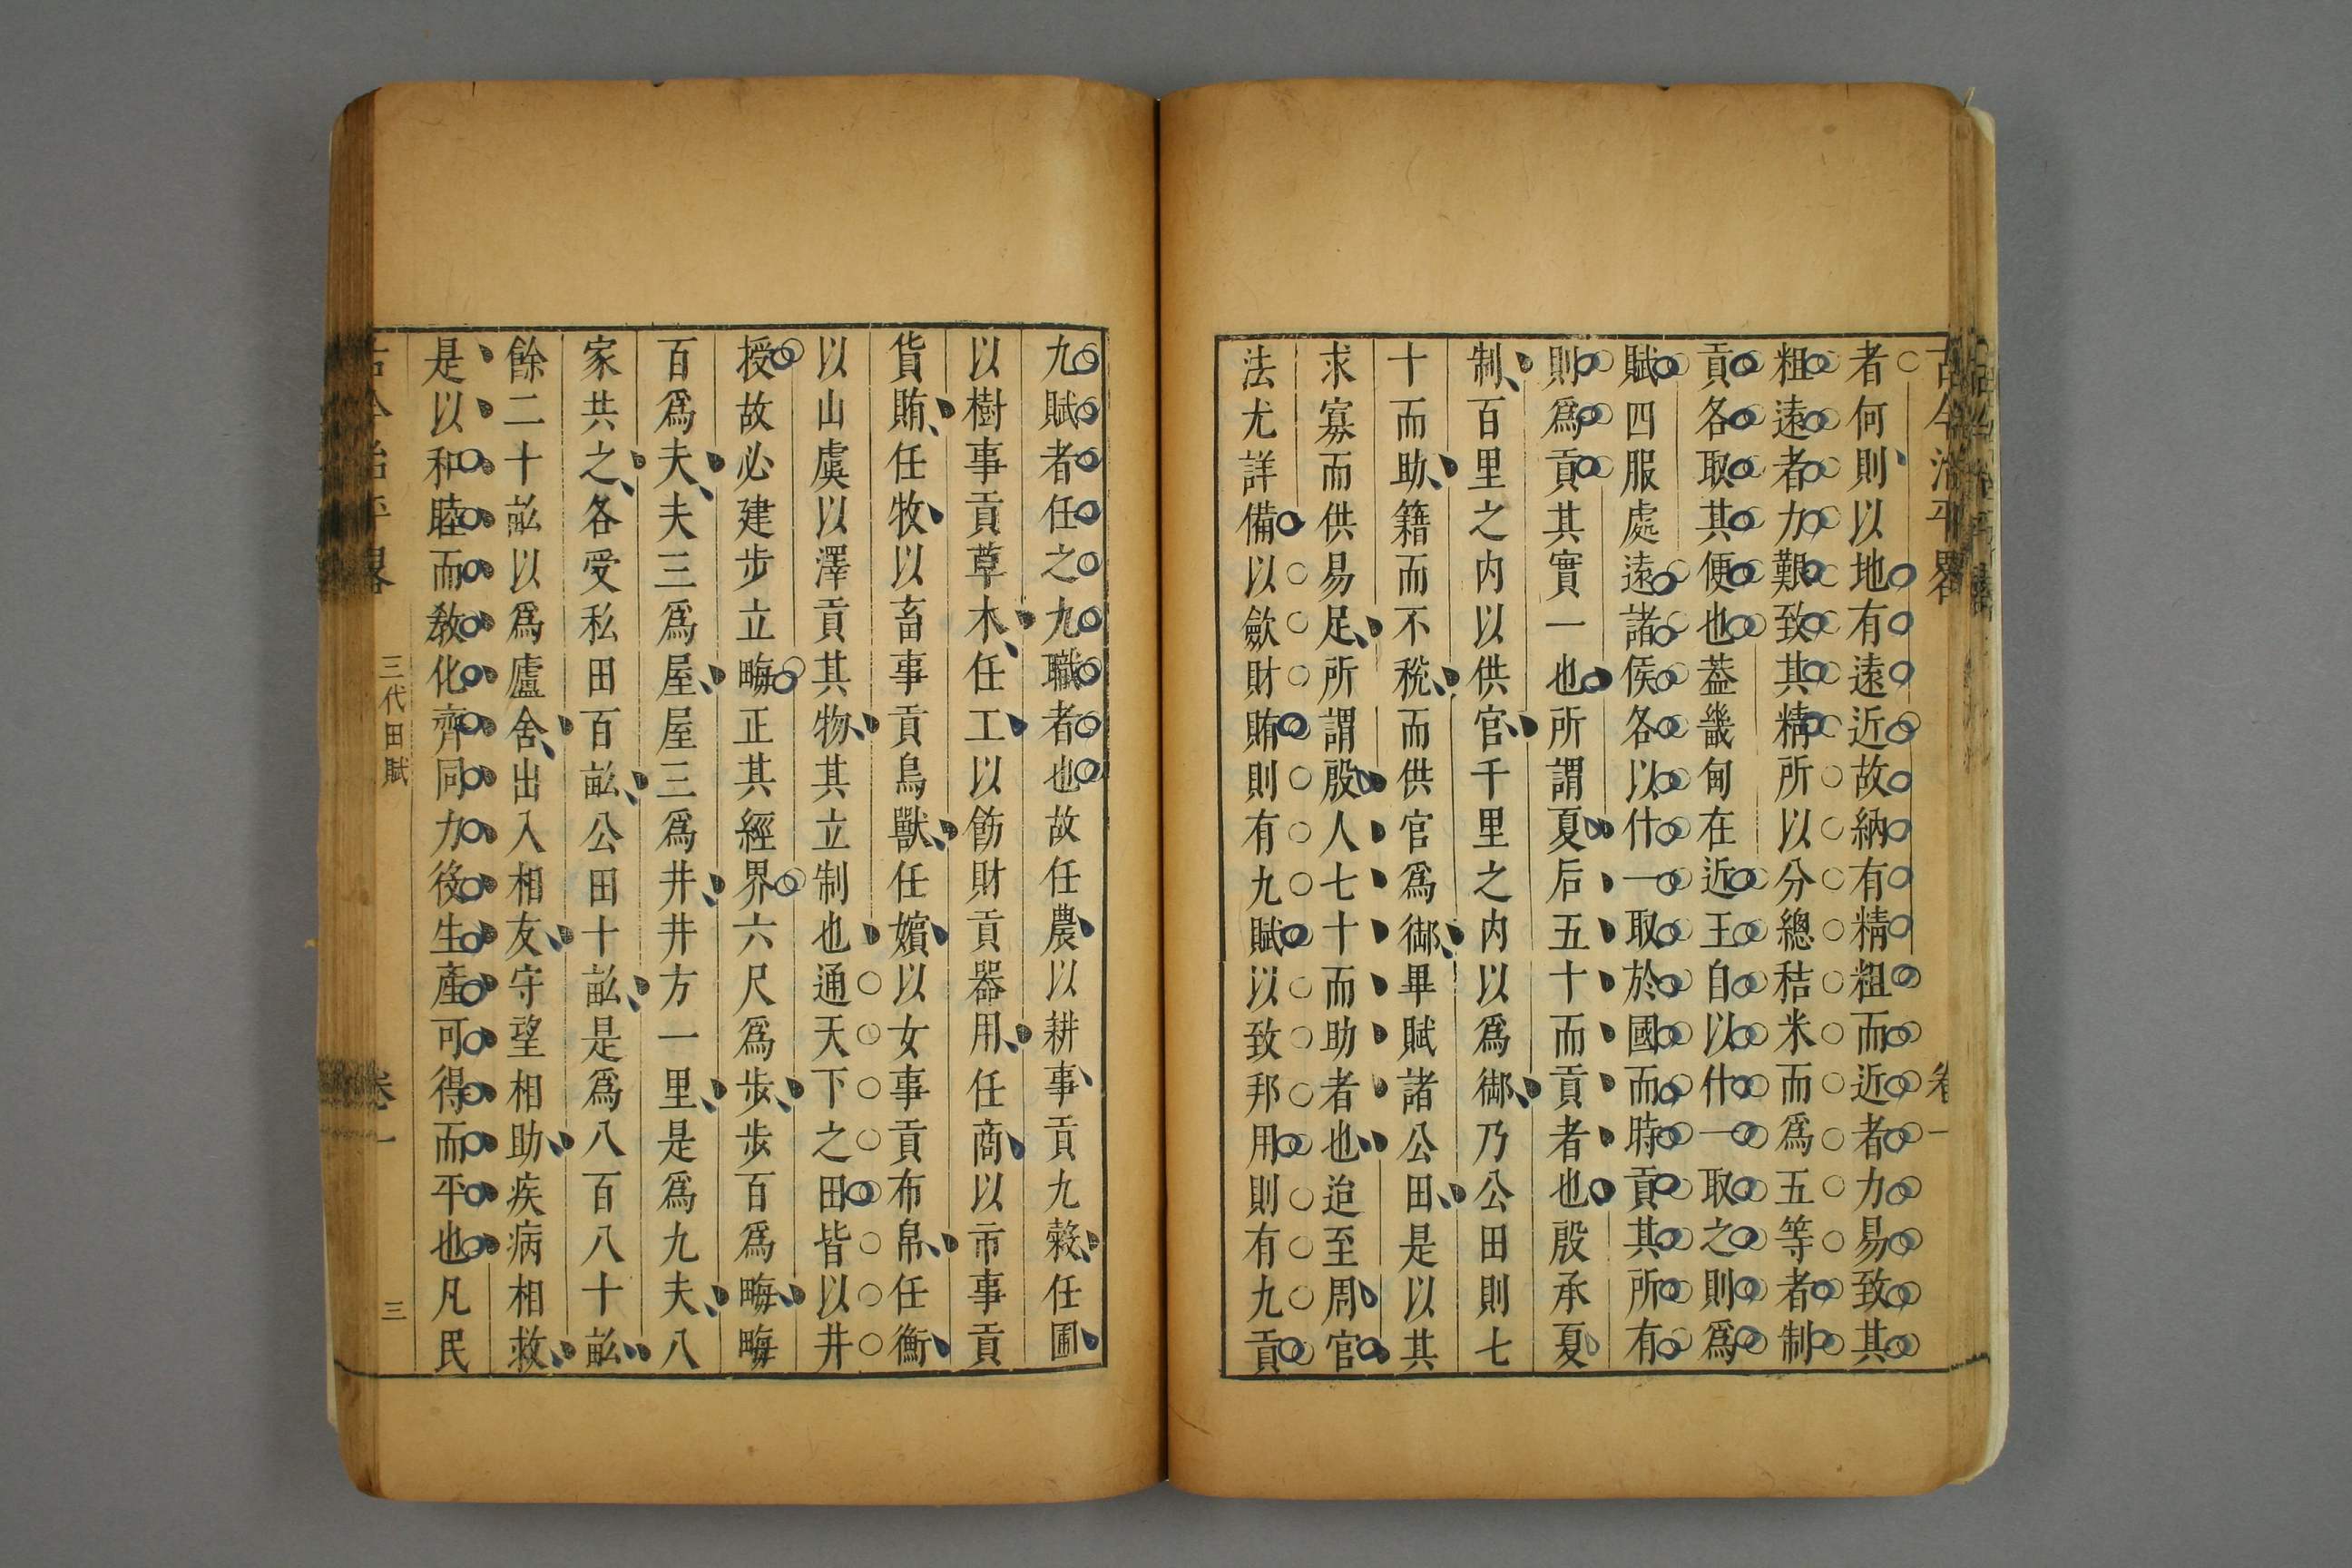 古今治平畧
卷一
者何則以地有遠近故納有精粗而近者力易致其
粗遠者力艱致其精所以分總秸米而爲五等者制
貢各取其便也葢畿甸在近王自以什一取之則爲
賦四服處遠諸侯各以什一取於國而時貢其所有
則爲貢其實一也所謂夏后五十而貢者也殷承夏
制百里之内以供官千里之内以爲御乃公田則七
十而助籍而不稅而供官爲御畢賦諸公田是以其
求寡而供易足所謂殷人七十而助者也迨至周官
法尤詳備以歛財賄則有九賦以致邦用則有九貢
九賦者任之九職者也故任農以耕事貢九穀任圃
以樹事貢草木任工以飭財貢器用任商以市事貢
貨賄任牧以畜事貢鳥獸任嬪以女事貢布帛任衡
以山虞以澤貢其物其立制也通天下之田皆以井
授故必建步立畮正其經界六尺爲歩歩百爲畮畮
百爲夫夫三爲屋屋三爲井井方一里是爲九夫八
家共之各受私田百畝公田十畝是爲八百八十畝
餘二十畝以爲廬舍出入相友守望相助疾病相救
是以和睦而敎化齊同力役生產可得而平也凡民
古今治平畧
三代田賦
卷一
三